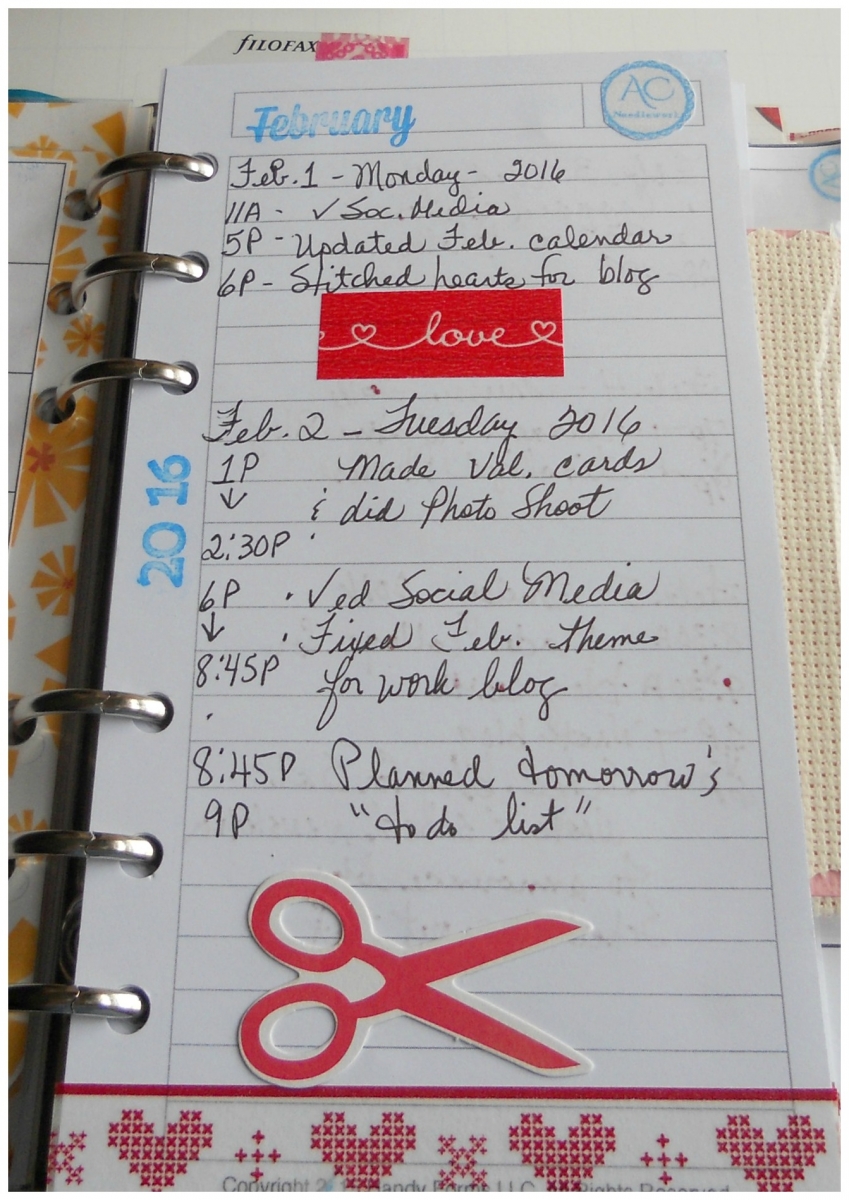 fILOFAX
February
AC
Needlework
Feb. 1 - Monday - 2016
11A - ✓ Soc. Media
5P - Updated Feb. calendar
6P - Stitched hearts for blog
love
Feb. 2 - Tuesday 2016
1P Made Val. cards
↓ & did Photo Shoot
2:30P
2016
6P · ✓ed Social Media
↓ · Fixed Feb. theme
8:45P for work blog
8:45P Planned tomorrow's
9P "to do list"
Copyright Handy Forms LLC, All Rights Reserved